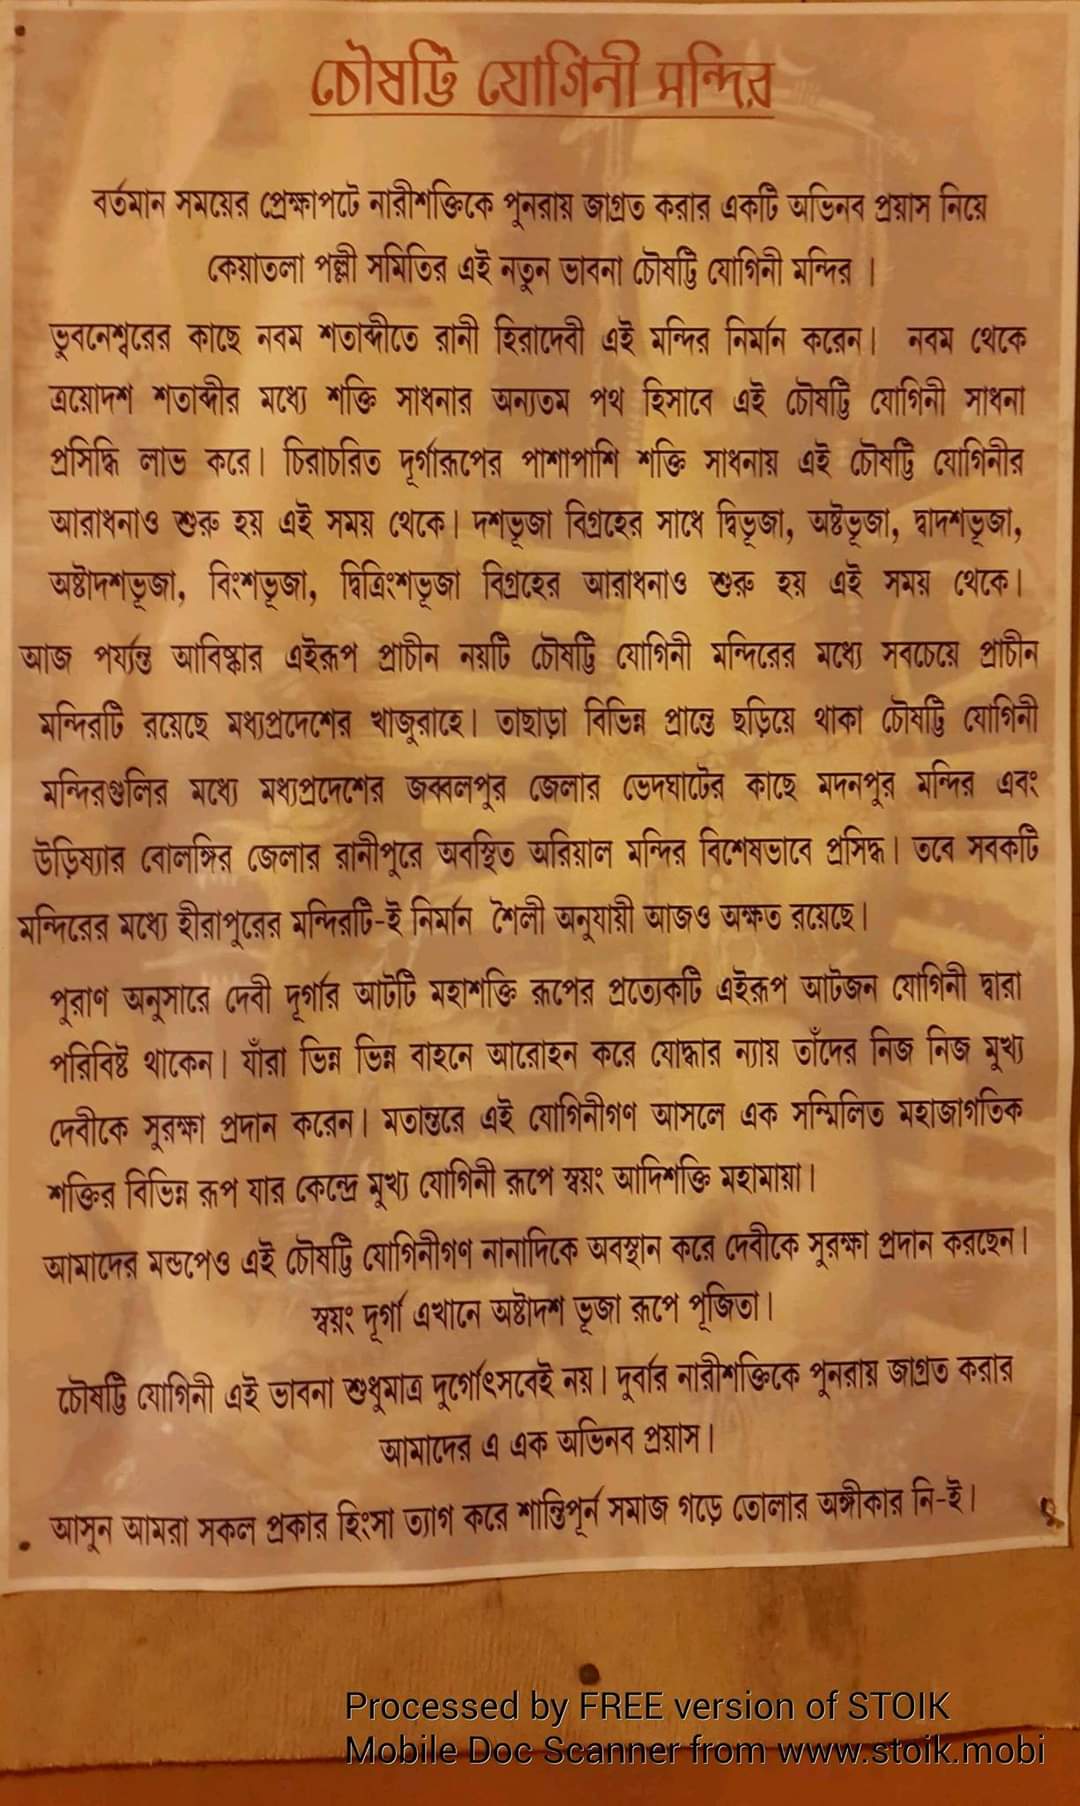 চৌষট্টি যোগিনী মন্দির
বর্তমান সময়ের প্রেক্ষাপটে নারীশক্তিকে পুনরায় জাগ্রত করার একটি অভিনব প্রয়াস নিয়ে
কেয়াতলা পল্লী সমিতির এই নতুন ভাবনা চৌষট্টি যোগিনী মন্দির ।
ভুবনেশ্বরের কাছে নবম শতাব্দীতে রানী হিরাদেবী এই মন্দির নির্মান করেন। নবম থেকে
ত্রয়োদশ শতাব্দীর মধ্যে শক্তি সাধনার অন্যতম পথ হিসাবে এই চৌষট্টি যোগিনী সাধনা
প্রসিদ্ধি লাভ করে। চিরাচরিত দূর্গারূপের পাশাপাশি শক্তি সাধনায় এই চৌষট্টি যোগিনীর
আরাধনাও শুরু হয় এই সময় থেকে। দশভূজা বিগ্রহের সাধে দ্বিভূজা, অষ্টভূজা, দ্বাদশভূজা,
অষ্টাদশভূজা, বিংশভূজা, দ্বিত্রিংশভূজা বিগ্রহের আরাধনাও শুরু হয় এই সময় থেকে।
আজ পর্য্যন্ত আবিষ্কার এইরূপ প্রাচীন নয়টি চৌষট্টি যোগিনী মন্দিরের মধ্যে সবচেয়ে প্রাচীন
মন্দিরটি রয়েছে মধ্যপ্রদেশের খাজুরাহে। তাছাড়া বিভিন্ন প্রান্তে ছড়িয়ে থাকা চৌষট্টি যোগিনী
মন্দিরগুলির মধ্যে মধ্যপ্রদেশের জব্বলপুর জেলার ভেদঘাটের কাছে মদনপুর মন্দির এবং
উড়িষ্যার বোলঙ্গির জেলার রানীপুরে অবস্থিত অরিয়াল মন্দির বিশেষভাবে প্রসিদ্ধ। তবে সবকটি
মন্দিরের মধ্যে হীরাপুরের মন্দিরটি-ই নির্মান শৈলী অনুযায়ী আজও অক্ষত রয়েছে।
পুরাণ অনুসারে দেবী দূর্গার আটটি মহাশক্তি রূপের প্রত্যেকটি এইরূপ আটজন যোগিনী দ্বারা
পরিবিষ্ট থাকেন। যাঁরা ভিন্ন ভিন্ন বাহনে আরোহন করে যোদ্ধার ন্যায় তাঁদের নিজ নিজ মুখ্য
দেবীকে সুরক্ষা প্রদান করেন। মতান্তরে এই যোগিনীগণ আসলে এক সন্মিলিত মহাজাগতিক
শক্তির বিভিন্ন রূপ যার কেন্দ্রে মুখ্য যোগিনী রূপে স্বয়ং আদিশক্তি মহামায়া।
আমাদের মন্ডপেও এই চৌষট্টি যোগিনীগণ নানাদিকে অবস্থান করে দেবীকে সুরক্ষা প্রদান করছেন।
স্বয়ং দূর্গা এখানে অষ্টাদশ ভূজা রূপে পূজিতা।
চৌষট্টি যোগিনী এই ভাবনা শুধুমাত্র দুর্গোৎসবেই নয়। দুর্বার নারীশক্তিকে পুনরায় জাগ্রত করার
আমাদের এ এক অভিনব প্রয়াস।
আসুন আমরা সকল প্রকার হিংসা ত্যাগ করে শান্তিপূর্ন সমাজ গড়ে তোলার অঙ্গীকার নি-ই।
Processed by FREE version of STOIK
Mobile Doc Scanner from www.stoik.mobi